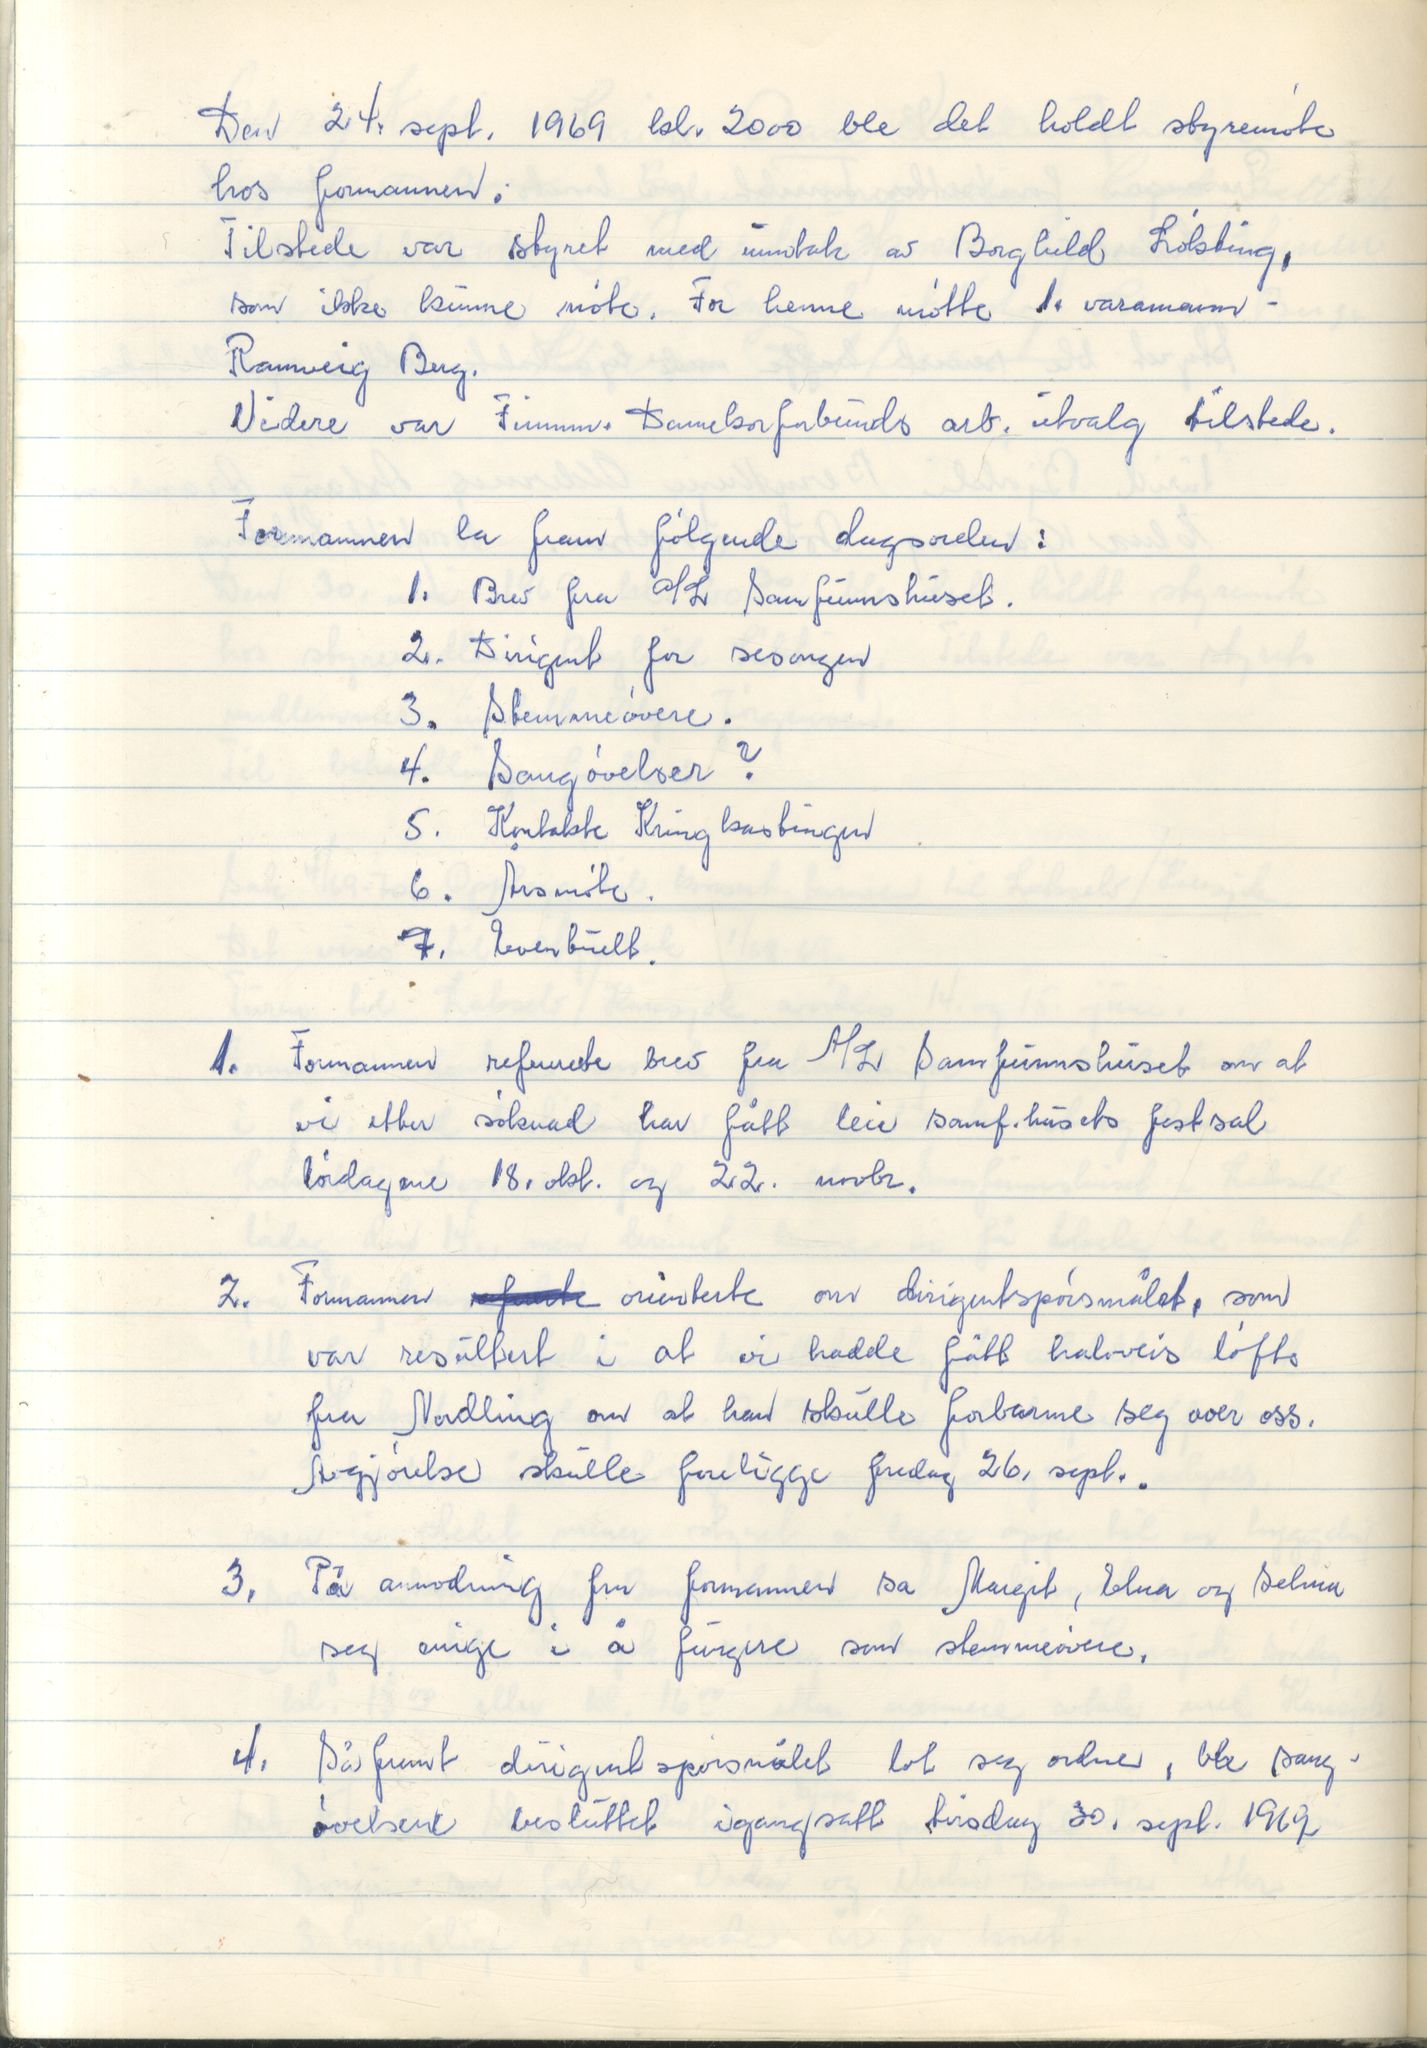 Den 24. sept. 1969 kl. 2000 ble det holdt styremöte
hos formannen.
Tilstede var styret med unntak av Borghild Lökting,
som ikke kunne möte. For henne mötte 1. varamann -
Rannveig Berg.
Videre var Finnm. Damekorforbunds arb. utvalg tilstede.
Formannen la fram fölgende dagsorden :
1. Brev fra A/L Samfunnshuset.
2. Dirigent for sesongen
3. Stemmeövere.
4. Sangövelser ?
5. Kontakte Kringkastingen
6. Årsmöte.
7. Eventuelt.
1. Formannen refererte brev fra A/L Samfunnshuset om at
vi etter söknad har fått leie samf.husets festsal
lördagene 18. okt. og 22. novbr.
2. Formannen orienterte om dirigentspörsmålet, som
var resultert i at vi hadde fått halvveis löfte
fra Nordling om at han skulle forbarme seg over oss.
Avgjörelse skulle foreligge fredag 26. sept..
3. På anmodning fra formannen sa Margit, Elna og Selma
seg enige i å fungere som stemmeövere.
4. Såfremt dirigentspörsmålet lot seg ordne, ble sang-
övelsene besluttet igangsatt tirsdag 30. sept. 1969